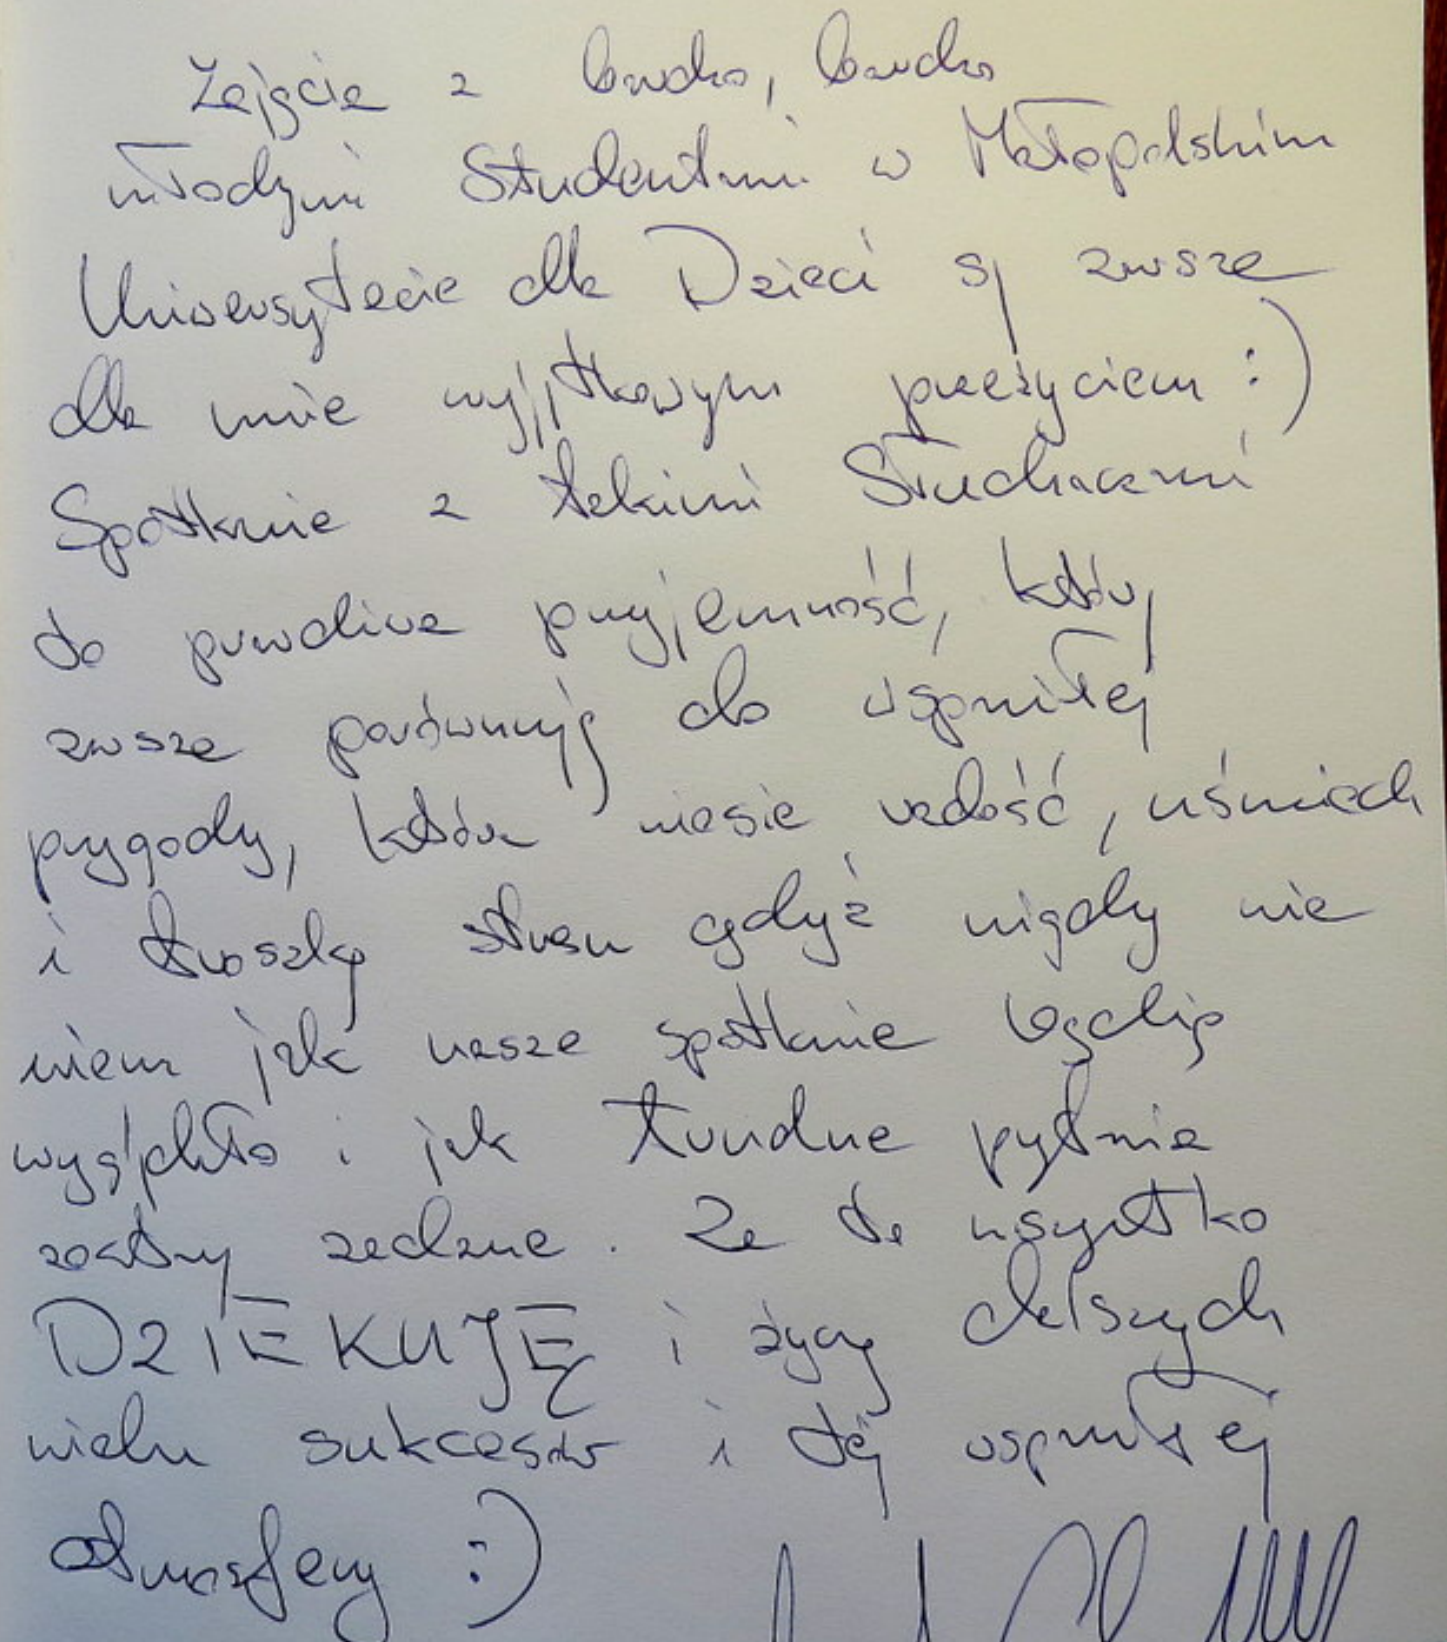 Zajęcia z bardzo, bardzo
młodymi Studentami w Małopolskim
Uniwersytecie dla Dzieci są zawsze
dla mnie wyjątkowym przeżyciem :)
Spotkanie z takimi Słuchaczami
to prawdziwa przyjemność, którą
zawsze porównuję do wspaniałej
przygody, która niesie radość, uśmiech
i troszkę stresu gdyż nigdy nie
wiem jak nasze spotkanie będzie
wyglądało i jak trudne pytania
zostaną zadane. Za to wszystko
DZIĘKUJĘ i życzę dalszych
wielu sukcesów i tej wspaniałej
atmosfery :)